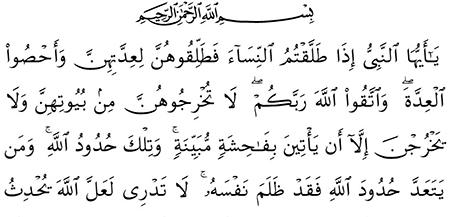 بِسْمِ ٱللَّهِ ٱلرَّحْمَٰنِ ٱلرَّحِيمِ
يَٰٓأَيُّهَا ٱلنَّبِىُّ إِذَا طَلَّقْتُمُ ٱلنِّسَآءَ فَطَلِّقُوهُنَّ لِعِدَّتِهِنَّ وَأَحْصُوا۟
ٱلْعِدَّةَ ۖ وَٱتَّقُوا۟ ٱللَّهَ رَبَّكُمْ ۖ لَا تُخْرِجُوهُنَّ مِنۢ بُيُوتِهِنَّ وَلَا
يَخْرُجْنَ إِلَّآ أَن يَأْتِينَ بِفَٰحِشَةٍ مُّبَيِّنَةٍ ۚ وَتِلْكَ حُدُودُ ٱللَّهِ ۚ وَمَن
يَتَعَدَّ حُدُودَ ٱللَّهِ فَقَدْ ظَلَمَ نَفْسَهُۥ ۚ لَا تَدْرِى لَعَلَّ ٱللَّهَ يُحْدِثُ